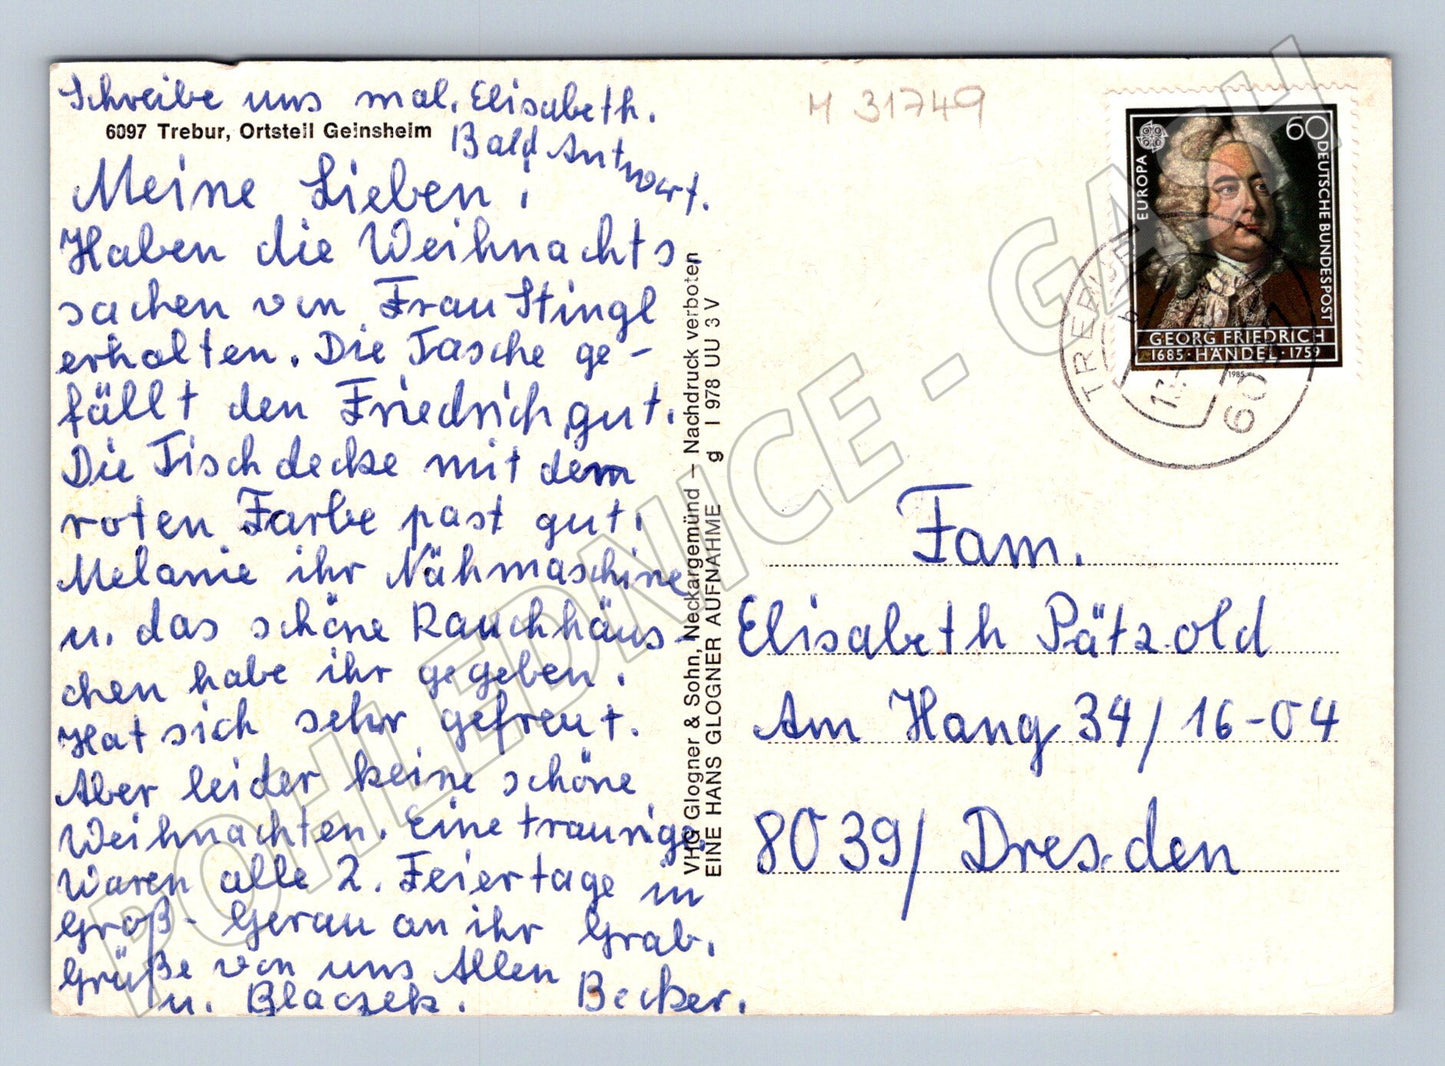 Schreibe uns mal. Elisabeth.
6097 Trebur, Ortsteil Geinsheim
Bald Antwort.
Meine Lieben!
Haben die Weihnachts-
sachen von Frau Stingl
erhalten. Die Tasche ge-
fällt den Friedrich, gut.
Die Tischdecke mit dem
roten Farbe past gut.
Melanie ihr Nähmaschine
u. das schöne Rauchhäus-
chen habe ihr gegeben.
Hat sich sehr gefreut.
Aber leider keine schöne
Weihnachten. Eine traurige.
Waren alle 2. Feiertage in
Groß-Gerau an ihr Grab.
Grüße von uns Allen
u. Blaczek. Becker.
VHG Glogner & Sohn, Neckargemünd – Nachdruck verboten
EINE HANS GLOGNER AUFNAHME g I 978 UU 3 V
M 31749
EUROPA
60
DEUTSCHE BUNDESPOST
GEORG FRIEDRICH
1685·HÄNDEL·1759
1985
TREBUR
Fam.
Elisabeth Pätzold
Am Hang 34/16-04
8039/ Dresden
POHLEDNICE - GASH